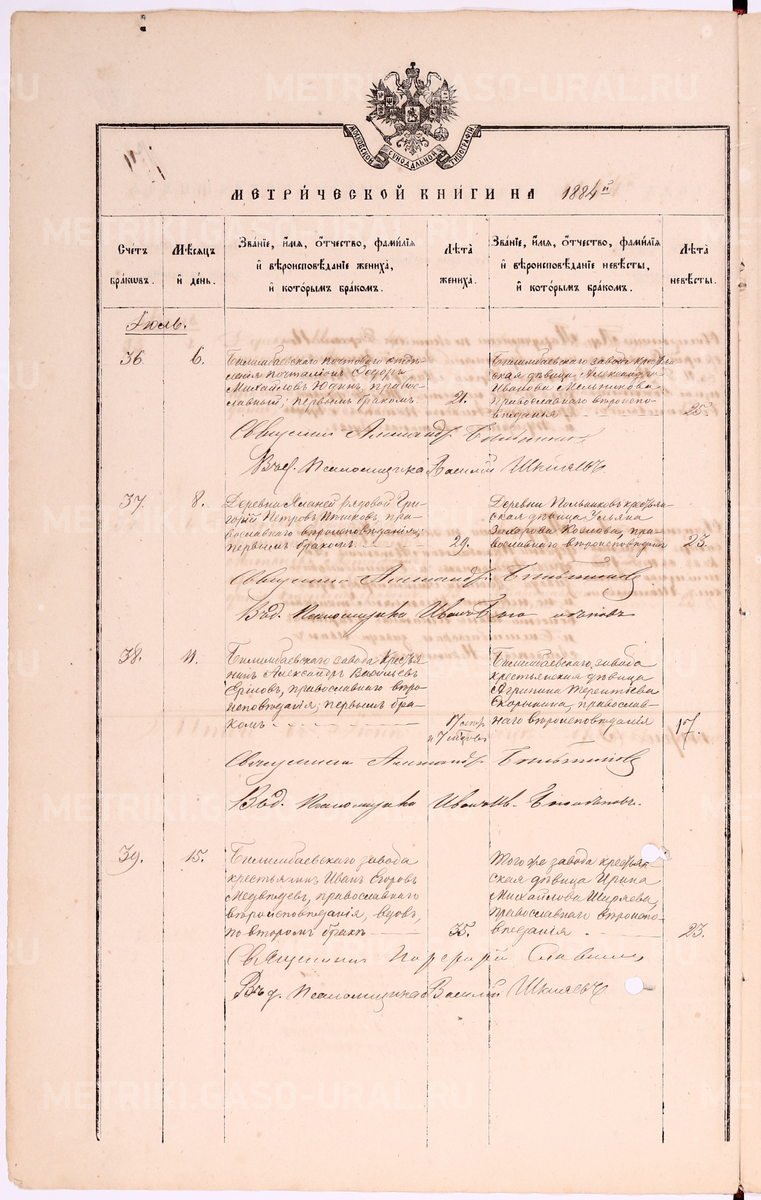 МОСКОВСКОЙ СѴНОДАЛЬНОЙ ТИПОГРАФІИ
МЕТРИ́ЧЕСКОЙ КНИГИ НА 1884й
Счетъ браковъ.
Мѣсяцъ и день.
Званіе, имя, отчество, фамилія и вѣроисповѣданіе жениха, и которымъ бракомъ.
Лѣта жениха.
Званіе, имя, отчество, фамилія и вѣроисповѣданіе невѣсты, и которымъ бракомъ.
Лѣта невѣсты.
Іюль.
36. 6.
Билимбаевскаго почтоваго отдѣ-
ленія почталіонъ Ѳедоръ
Михайловъ Юдинъ, право-
славный; первымъ бракомъ
21.
Билимбаевскаго завода крестьян-
ская дѣвица Александра
Иванова Мельникова
православнаго вѣроиспо-
вѣданія
25.
Священникъ Александръ
Въ д. Псаломщика Василій Шкляевъ
37. 8.
Деревни рядовой Гри-
горій Петровъ пра-
вославнаго вѣроисповѣданія;
первымъ бракомъ.
29.
Деревни крестьян-
ская дѣвица Ульяна
Козлова, пра-
вославнаго вѣроисповѣданія
23.
Священникъ Александръ
Въ д. Псаломщика Иванъ
38. 11.
Билимбаевскаго завода крестья-
нинъ Александръ Васильевъ
православнаго вѣро-
исповѣданія; первымъ бра-
комъ
17 лѣтъ
и 7 мѣсяцовъ
Билимбаевскаго завода
крестьянская дѣвица
Агрипина Терентіева
Скорынина, православ-
наго вѣроисповѣданія
17.
Священникъ Александръ
Въ д. Псаломщика Иванъ
39. 15.
Билимбаевскаго завода
крестьянинъ Иванъ Егоровъ
Медвѣдевъ, православнаго
вѣроисповѣданія, вдовъ,
по второмъ бракѣ
35.
Того же завода крестьян-
ская дѣвица Ирина
Михайлова Ширяева,
православнаго вѣроиспо-
вѣданія
23.
Священникъ Порфирій Славнинъ
Въ д. Псаломщика Василій Шкляевъ
METRIKI.GASO-URAL.RU